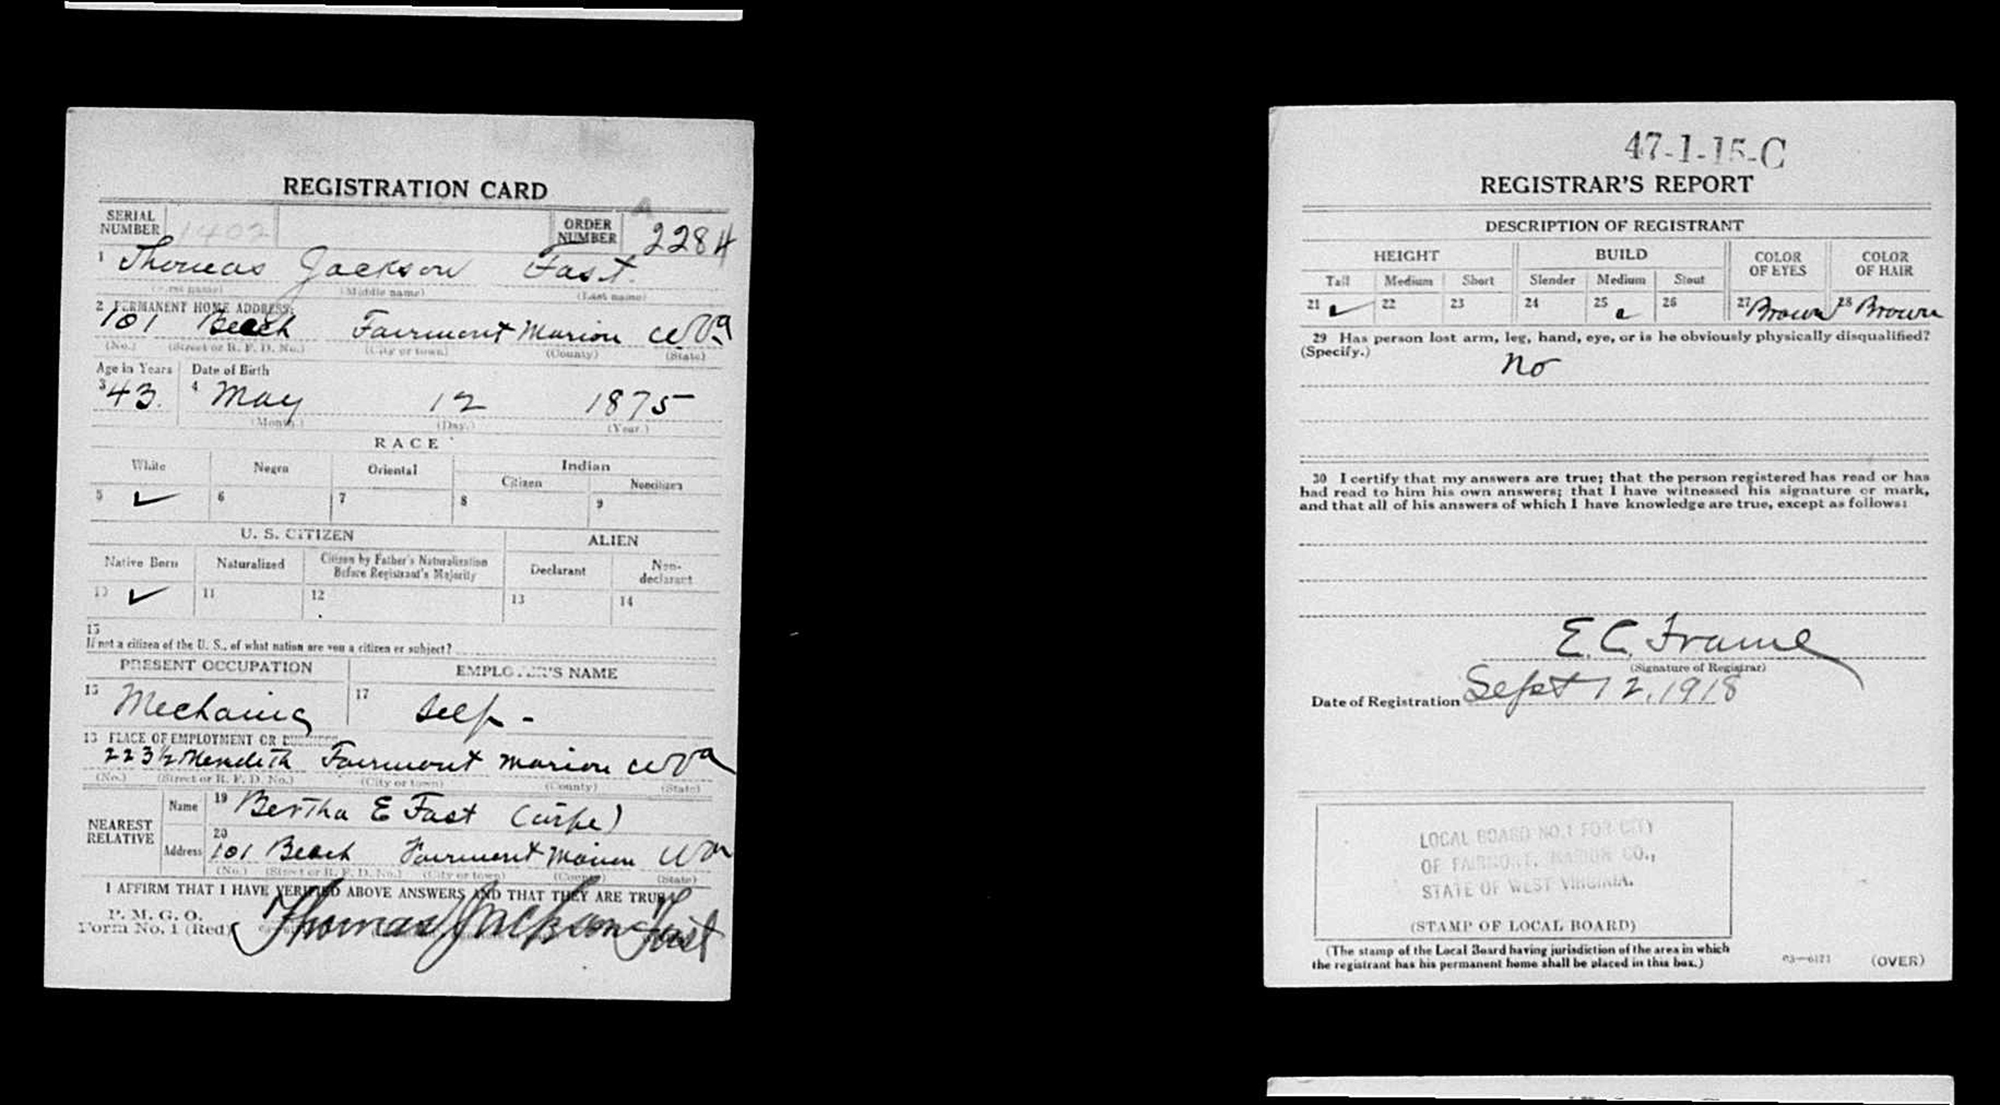 REGISTRATION CARD
SERIAL NUMBER 1402 ORDER NUMBER A 2284
1 Thomas Jackson Fast.
(First name) (Middle name) (Last name)
2 PERMANENT HOME ADDRESS:
101 Beech Fairmont Marion W Va
(No.) (Street or R. F. D. No.) (City or town) (County) (State)
Age in Years Date of Birth
3 43. 4 May 12 1875
(Month.) (Day.) (Year.)
RACE
White Negro Oriental Indian
Citizen Noncitizen
5 ✓ 6 7 8 9
U. S. CITIZEN ALIEN
Native Born Naturalized Citizen by Father's Naturalization Before Registrant's Majority Declarant Non-declarant
10 ✓ 11 12 13 14
15
If not a citizen of the U. S., of what nation are you a citizen or subject?
PRESENT OCCUPATION EMPLOYER'S NAME
16 Mechanic 17 Self -
18 PLACE OF EMPLOYMENT OR BUSINESS
223½ Meredith Fairmont Marion W Va
(No.) (Street or R. F. D. No.) (City or town) (County) (State)
NEAREST RELATIVE Name 19 Bertha E Fast (wife)
Address 20 101 Beech Fairmont Marion W Va
(No.) (Street or R. F. D. No.) (City or town) (County) (State)
I AFFIRM THAT I HAVE VERIFIED ABOVE ANSWERS AND THAT THEY ARE TRUE
P. M. G. O.
Form No. 1 (Red) Thomas Jackson Fast
47-1-15-C
REGISTRAR'S REPORT
DESCRIPTION OF REGISTRANT
HEIGHT BUILD COLOR OF EYES COLOR OF HAIR
Tall Medium Short Slender Medium Stout
21 ✓ 22 23 24 25 26 27 Brown 28 Brown
29 Has person lost arm, leg, hand, eye, or is he obviously physically disqualified?
(Specify.) no
30 I certify that my answers are true; that the person registered has read or has
had read to him his own answers; that I have witnessed his signature or mark,
and that all of his answers of which I have knowledge are true, except as follows:
E. C. Frame
(Signature of Registrar)
Date of Registration Sept 12, 1918
LOCAL BOARD NO. 1 FOR CITY
OF FAIRMONT, MARION CO.,
STATE OF WEST VIRGINIA.
(STAMP OF LOCAL BOARD)
(The stamp of the Local Board having jurisdiction of the area in which
the registrant has his permanent home shall be placed in this box.)
03—6171 (OVER)